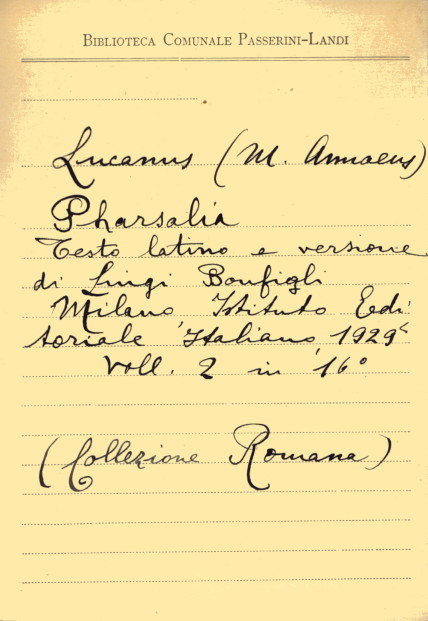 BIBLIOTECA COMUNALE PASSERINI-LANDI
Lucanus (M. Annaeus)
Pharsalia
Testo latino e versione
di Luigi Bonfigli
Milano Istituto Edi
toriale Italiano 1929
Voll. 2 in 16°
(Collezione Romana)